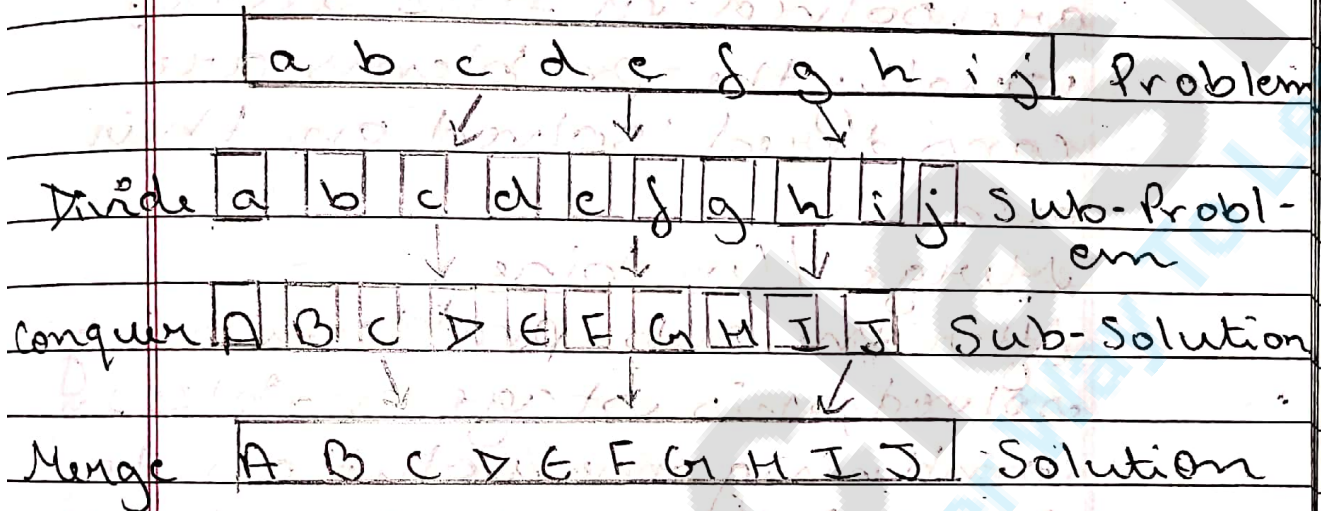 a b c d e f g h i j Problem
Divide a b c d e f g h i j Sub-Probl-
em
Conquer A B C D E F G H I J Sub-Solution
Merge A B C D E F G H I J Solution